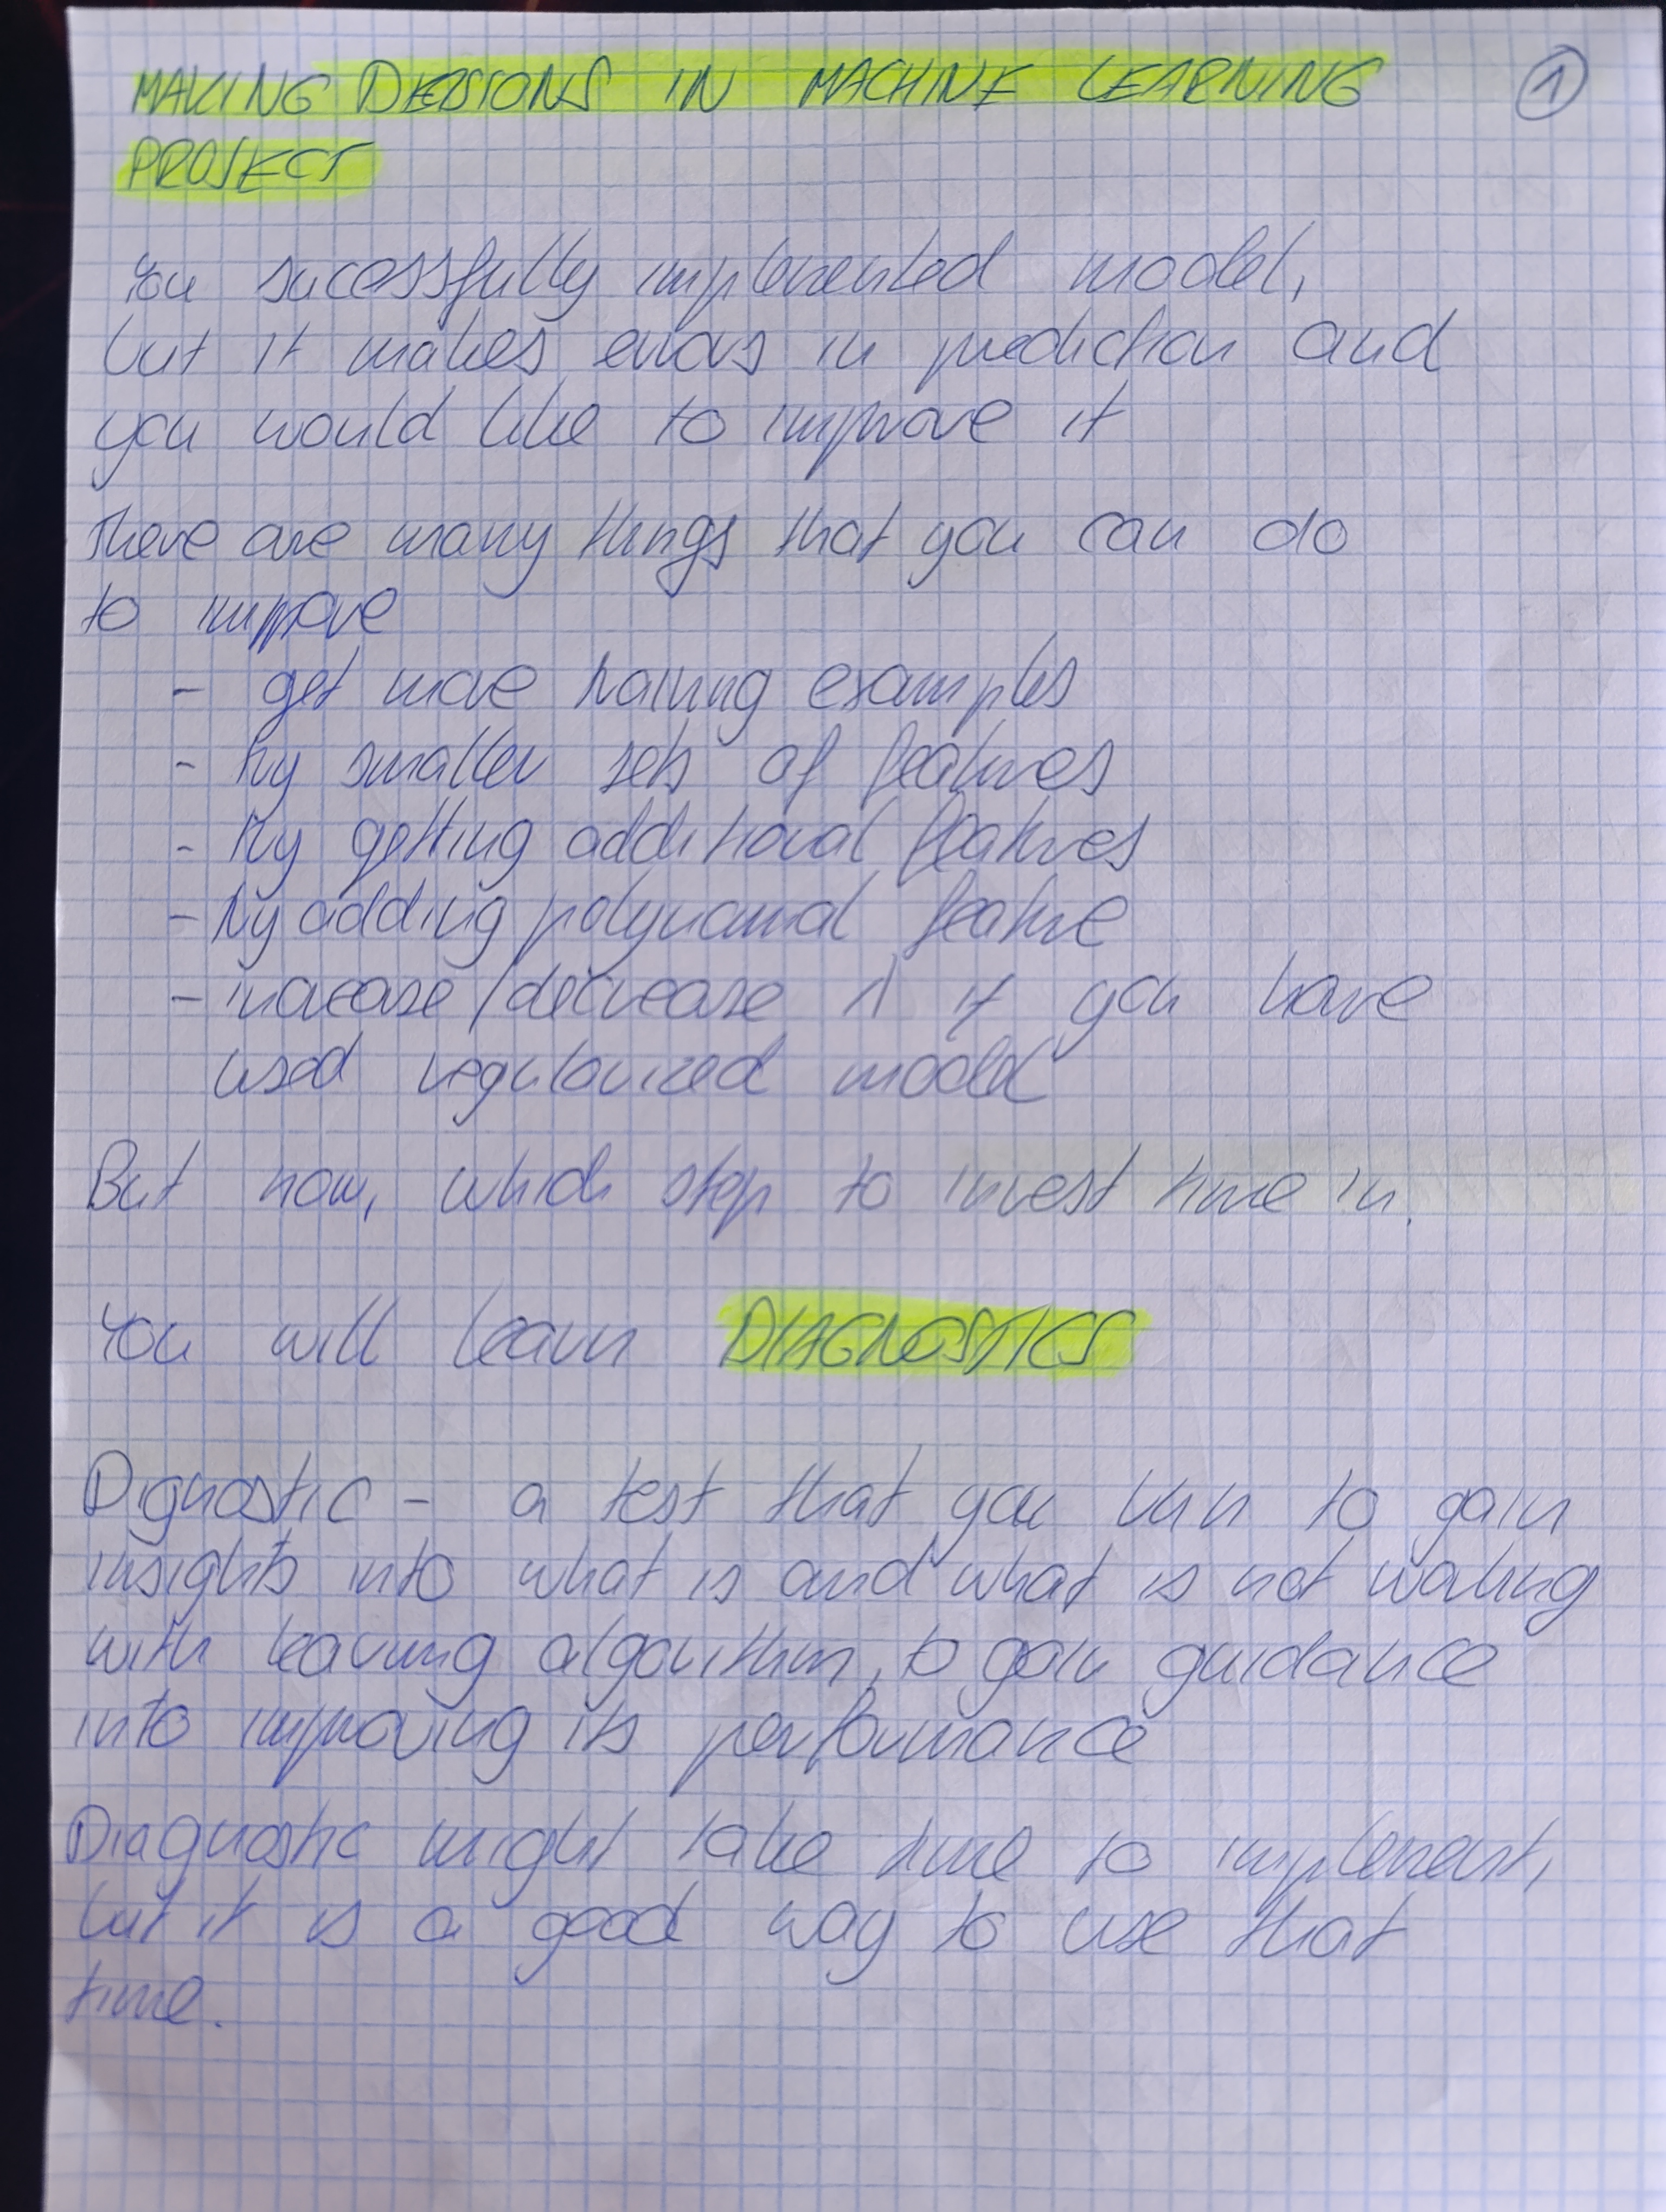 MAKING DECISIONS IN MACHINE LEARNING
①
PROJECT
You sucessfully implemented model,
but it makes errors in prediction and
you would like to improve it
There are many things that you can do
to improve
- get more training examples
- try smaller sets of features
- try getting additional features
- try adding polynomial feature
- increase/decrease λ if you have
used regularized model
But now, which step to invest time in.
You will learn DIAGNOSTICS
Dignostic - a test that you run to gain
insights into what is and what is not working
with learning algorithm, to gain guidance
into improving its performance
Diagnostic might take time to implement,
but it is a good way to use that
time.